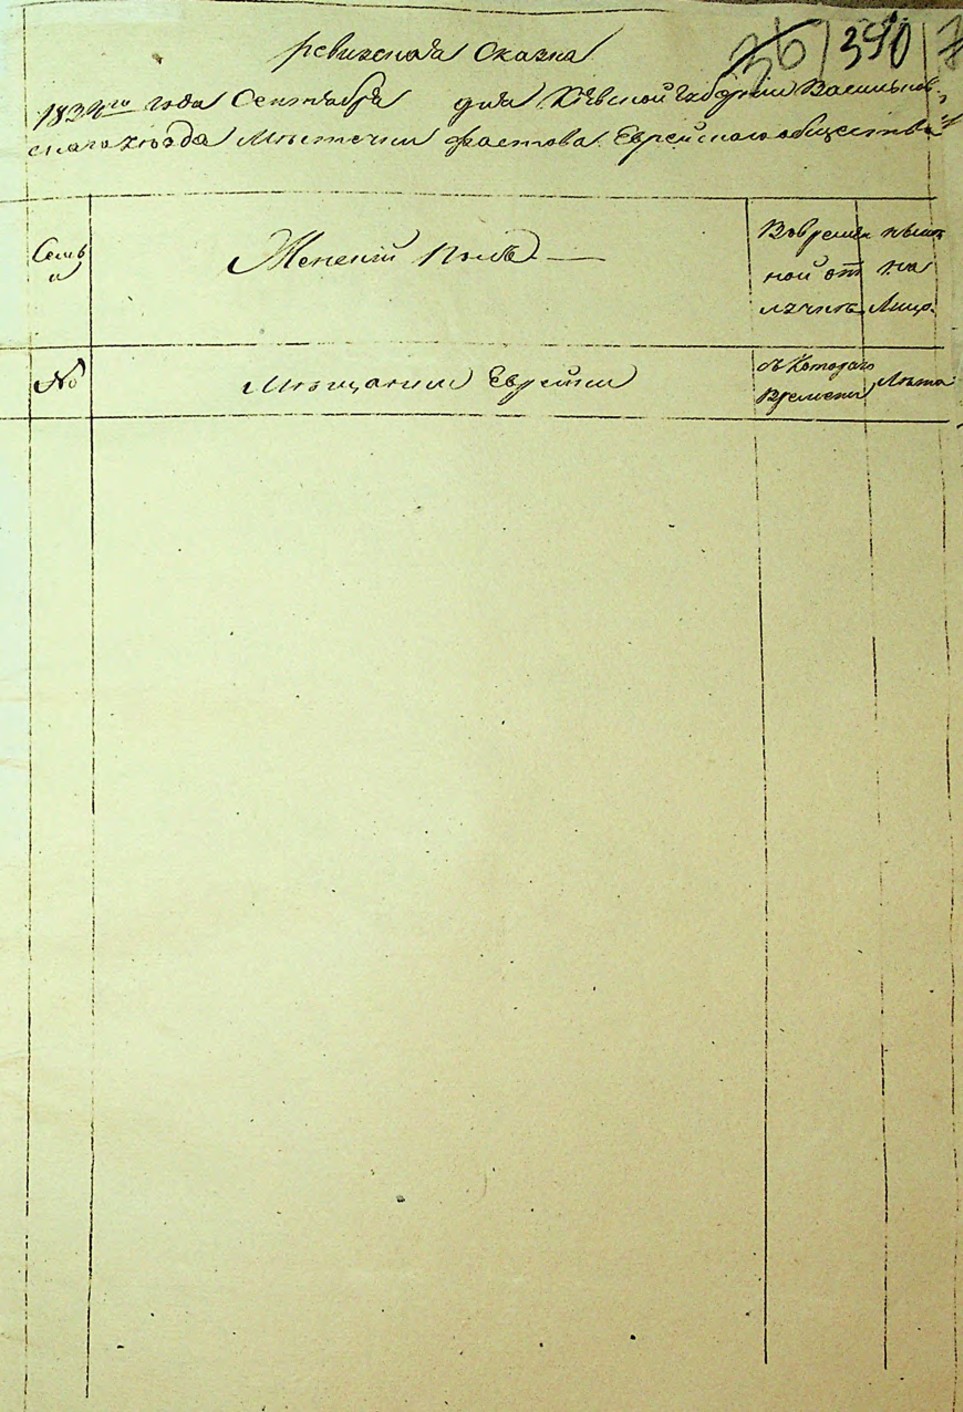 ревизская сказка
36 390
1834го года Сентября дня Кіевской губерніи Васильков-
скаго уѣзда Мѣстечки Фастова Еврейского общества
Семьи
Женскій полъ
Во временной отлучкѣ
нынѣ на Лицо.
№
Мещанки Еврейки
съ котораго Времени
Лѣта